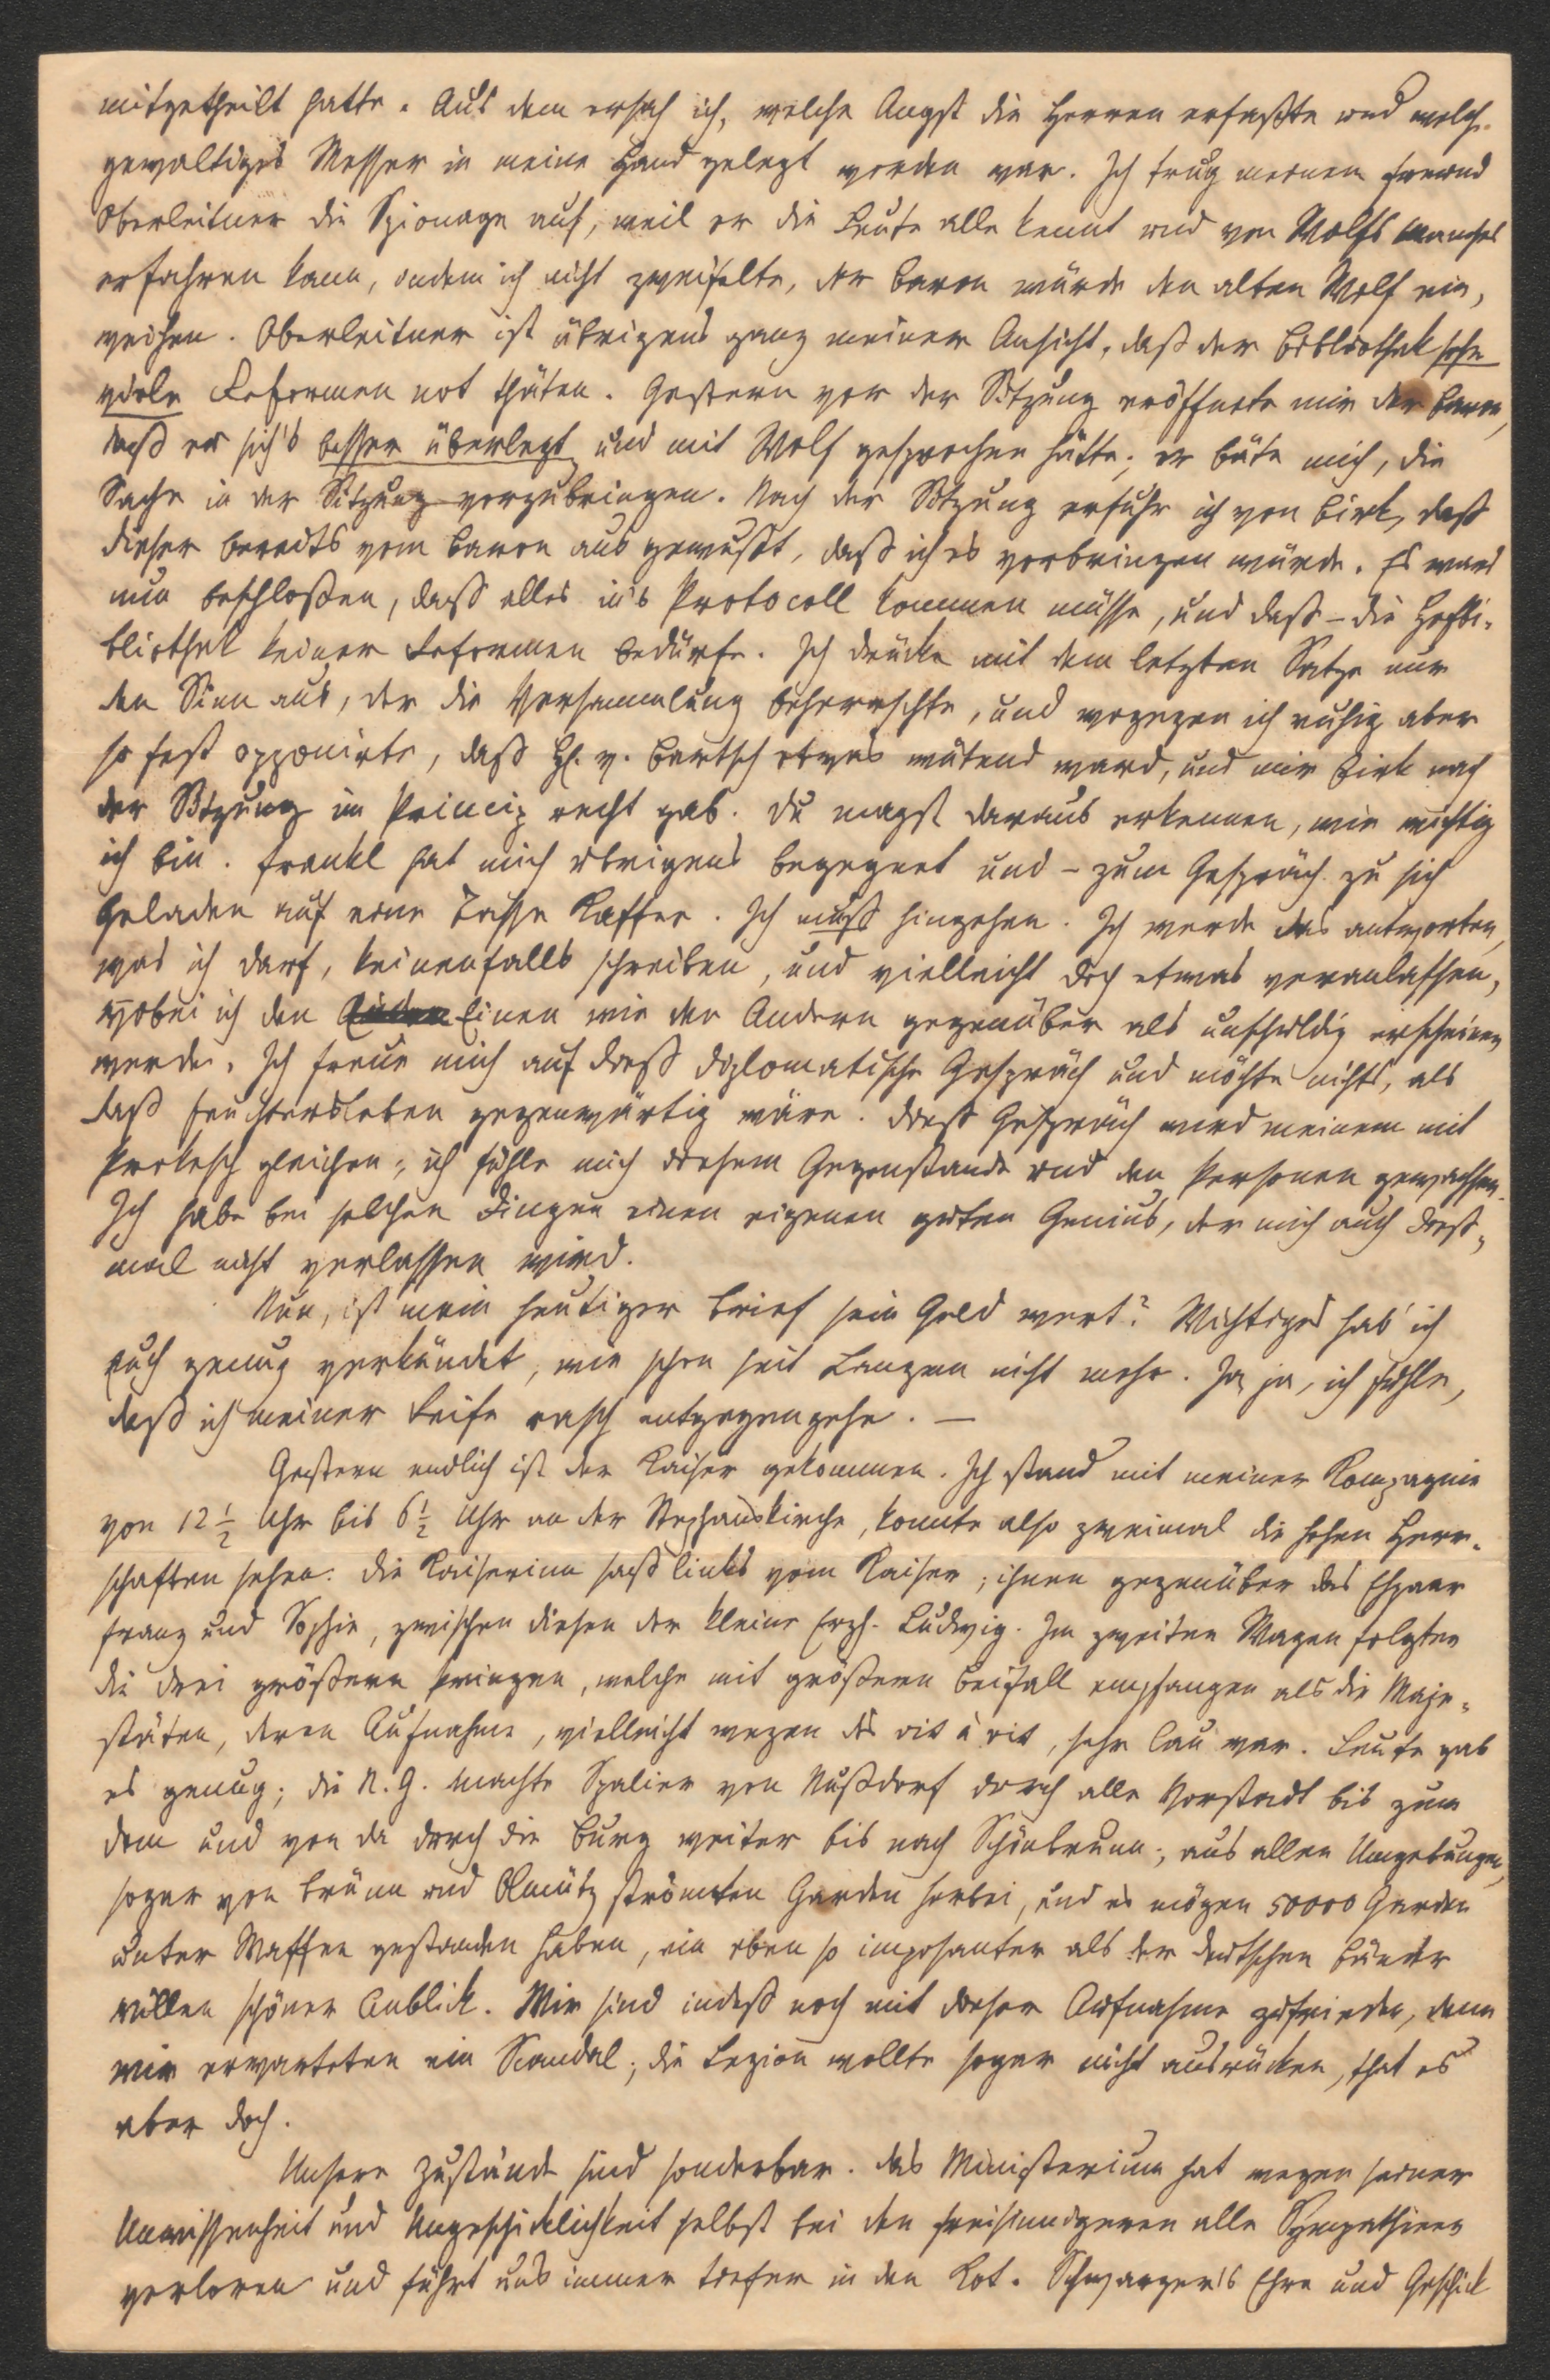 mitgetheilt hatte. Aus dem ersah ich, welche Angst die Herren erfaßte und welch
gewaltiges Messer in meine Hand gelegt worden war. Ich trug meinem Freund
Oberleitner die Spionage auf, weil er die Leute alle kennt und von Wolfs manches
erfahren kann, indem ich nicht zweifelte, der Baron würde den alten Wolf ein,
weihen. Oberleitner ist übrigens ganz meiner Ansicht, daß der Bibliothek sehr
viele Reformen not thäten. Gestern vor der Sitzung eröffnete mir der Baron,
daß er sich's besser überlegt und mit Wolf gesprochen hätte; er bäte mich, die
Sache in der Sitzung vorzubringen. Nach der Sitzung erfuhr ich von Birk, daß
dieser bereits vom Baron aus gewußt, daß ich es vorbringen würde. Es ward
nun beschloßen, daß alles in's Protocoll kommen müsse, und daß – die Hofbi-
bliothek keiner Reformen bedürfe. Ich drücke mit dem letzten Satze nur
den Sinn aus, der die Versammlung beherrschte, und wogegen ich ruhig aber
so fest opponirte, daß H. v. Bartsch etwas wütend ward, und mir Birk nach
der Sitzung im Princip recht gab. Du magst daraus erkennen, wie wichtig
ich bin. Frankl hat mich übrigens begegnet und – zum Gespräch zu sich
geladen auf eine Tasse Kaffee. Ich muß hingehen. Ich werde das antworten,
was ich darf, keinenfalls schreiben, und vielleicht doch etwas veranlassen,
wobei ich den Einen wie den Andern gegenüber als unschuldig erscheinen
werde. Ich freue mich auf dieß diplomatische Gespräch und möchte nichts, als
daß Feuchtersleben gegenwärtig wäre. Dieß Gespräch wird meinem mit
Prokesch gleichen; ich fühle mich diesem Gegenstande und den Personen gewachsen.
Ich habe bei solchen Dingen einen eigenen guten Genius, der mich auch dieß-
mal nicht verlassen wird.
Nun, ist mein heutiger Brief sein Geld wert? Wichtiges hab' ich
Euch genug verkündet, wie schon seit Langem nicht mehr. Ja, ja, ich fühle,
daß ich meiner Reife rasch entgegengehe. —
Gestern endlich ist der Kaiser gekommen. Ich stand mit meiner Kompagnie
von 12 1/2 Uhr bis 6 1/2 Uhr an der Stephanskirche, konnte also zweimal die hohen Herr-
schaften sehen. Die Kaiserinn saß links vom Kaiser; ihnen gegenüber das Ehpaar
Franz und Sophie, zwischen diesen der kleine Erzh. Ludwig. Im zweiten Wagen folgten
die drei größern Prinzen, welche mit größerm Beifall empfangen als die Maje-
stäten, deren Aufnahme, vielleicht wegen des vis à vis, sehr lau war. Leute gab
es genug; die N. G. machte Spalier von Nußdorf durch alle Vorstadt bis zum
Dom und von da durch die Burg weiter bis nach Schönbrunn; aus allen Umgebungen,
sogar von Brünn und Olmütz strömten Garden herbei, und es mögen 50000 Garden
unter Waffen gestanden haben, ein eben so imposanter als der deutschen Bänder
willen schöner Anblick. Wir sind indeß noch mit dieser Aufnahme zufrieden, denn
wir erwarteten ein Scandal; die Legion wollte sogar nicht ausrücken, that es
aber doch.
Unsere Zustände sind sonderbar. Das Ministerium hat wegen seiner
Unwissenheit und Ungeschicklichkeit selbst bei den freisinnigeren alle Sympathieen
verloren und führt uns immer tiefer in den Kot. Schwarzer's Ehre und Geschick